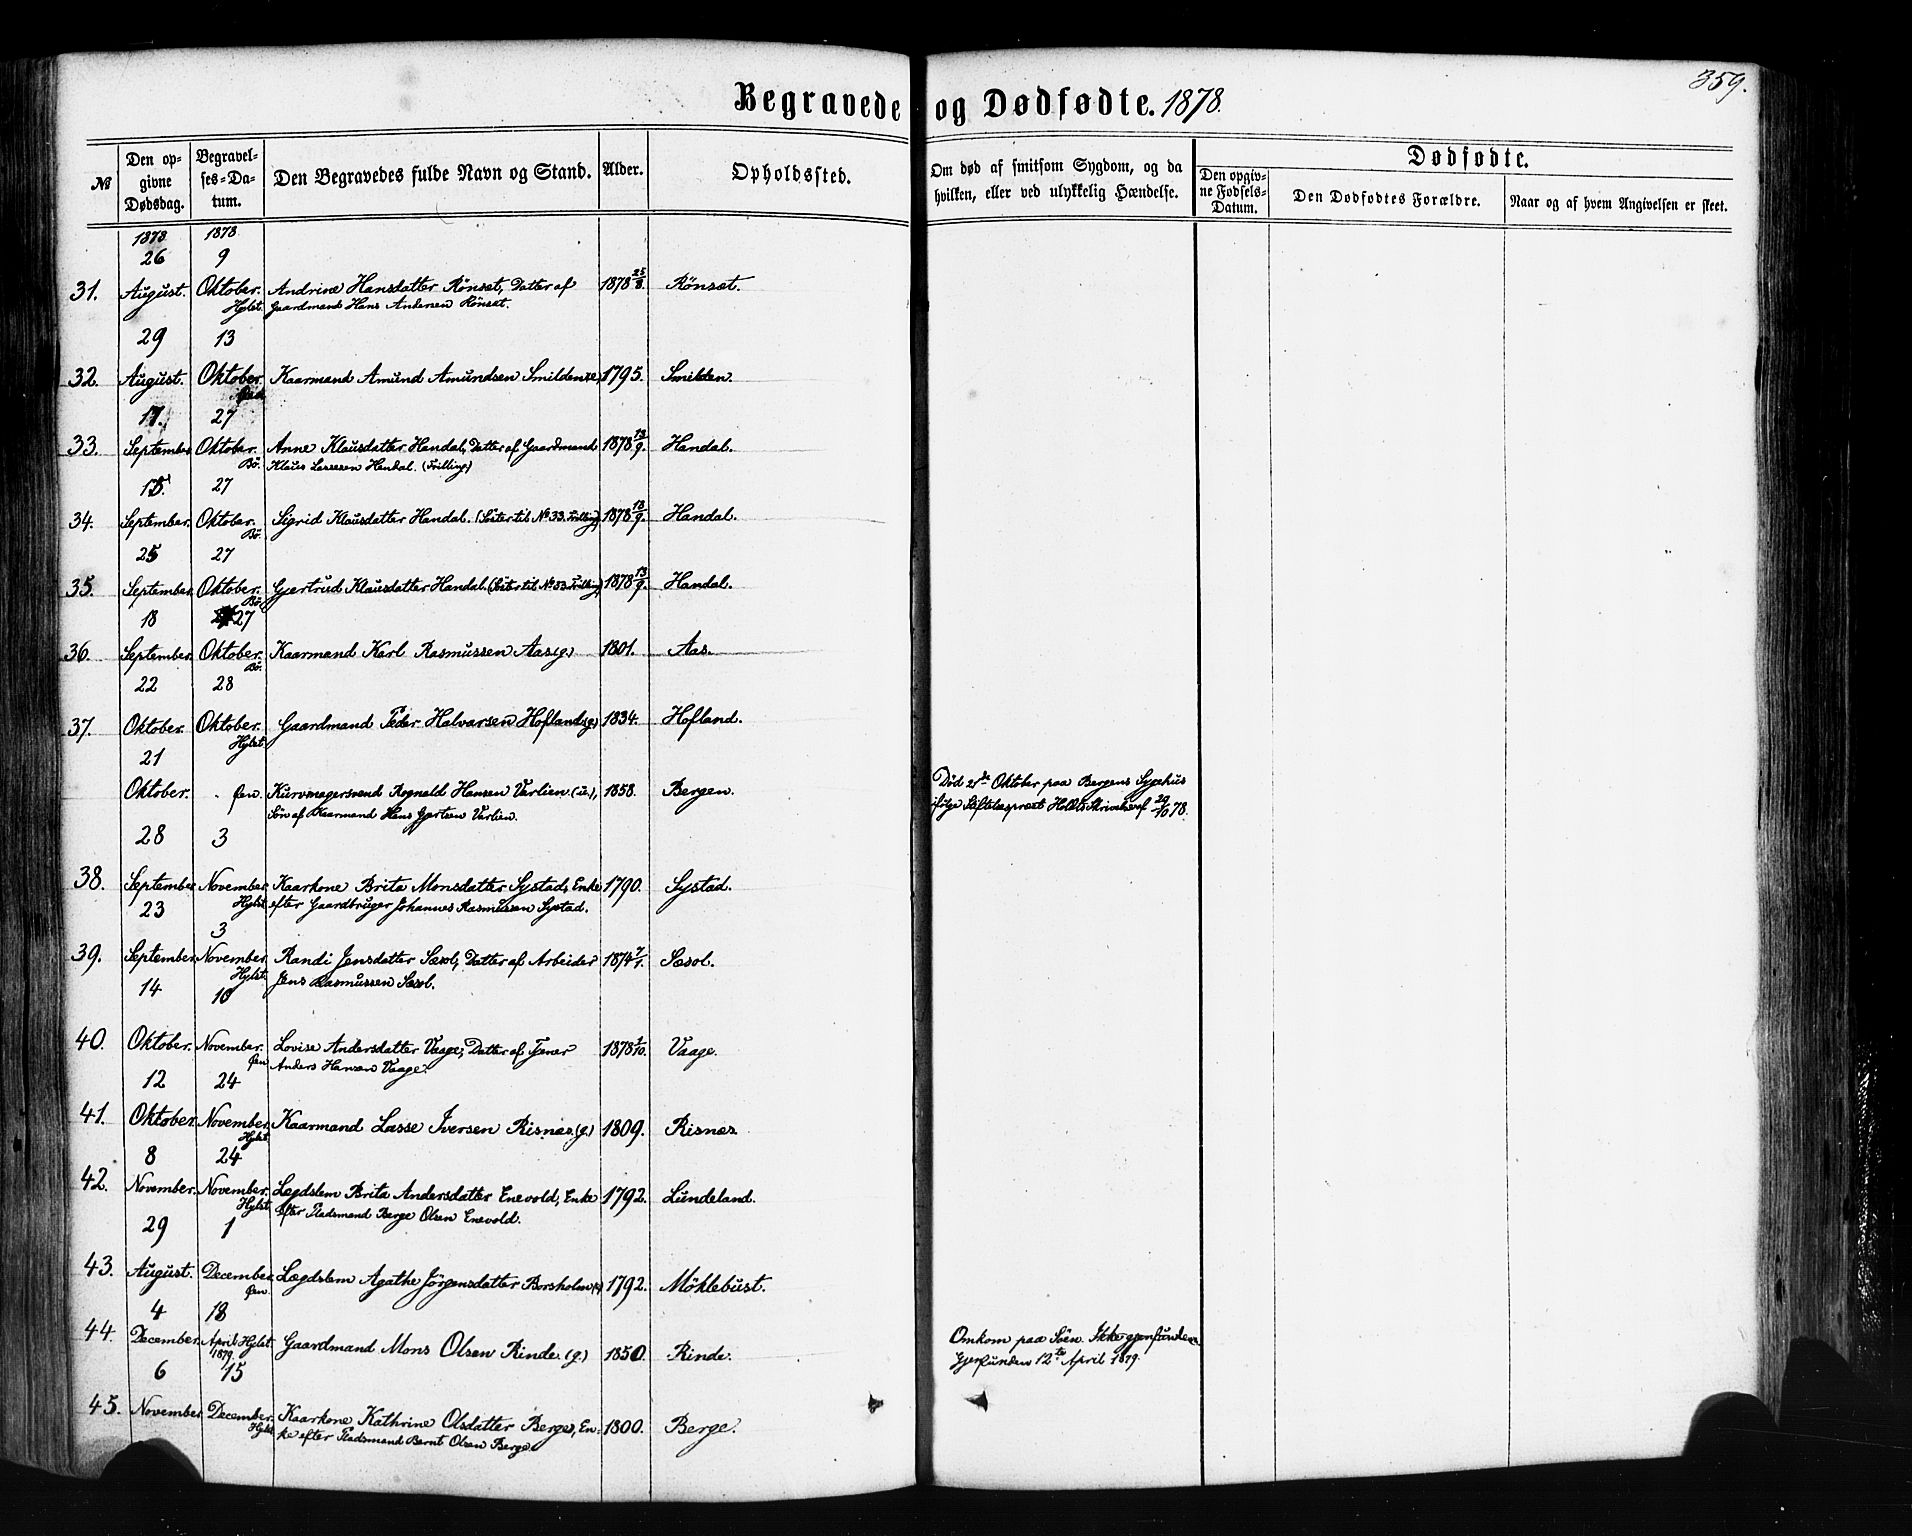 359.
Begravede og Dødfødte. 1878.
№
Den opgivne Dødsdag.
Begravelses-Datum.
Den Begravedes fulde Navn og Stand.
Alder.
Opholdssted.
Om død af smitsom Sygdom, og da hvilken, eller ved ulykkelig Hændelse.
Dødfødte.
Den opgivne Fødsels-Datum.
Den Dødfødtes Forældre.
Naar og af hvem Angivelsen er skeet.
1878 1878
26 9
31. August. Oktober. Andrine Hansdatter Rönset, Datter af 1878 25/8. Rönset.
Hylst. Gaardmand Hans Andersen Rönset.
29 13
32. August. Oktober Kaarmand Amund Amundsen Smilden 1795. Smilden.
17. 27
33. September Oktober. Anne Klausdatter Handal, Datter af Gaardmand 1878 13/9. Handal.
Bö. Klaus Lassesen Handal. (Trilling)
15. 27
34. September. Oktober. Sigrid Klausdatter Handal. (Söster til No 33. Trilling) 1878 13/9. Handal.
Bö.
25 27
35. September. Oktober. Gjertrud Klausdatter Handal. (Söster til No 33 Trilling) 1878 13/9. Handal.
Bö.
18 27
36. September. Oktober. Kaarmand Karl Rasmussen Aas (g) 1801. Aas.
Bö.
22 28
37. Oktober. Oktober. Gaardmand Peder Halvarsen Hofland (g) 1834. Hofland.
Hylst.
21
Oktober. Øen. Kurvmagersvend Rognald Hansen Varlien (u), 1858. Bergen. Död 21de Oktober paa Bergens Sygehus
Sön af Kaarmand Hans Gjertsen Varlien. ifölge Stiftsprovst Holtes Skrivelse af 29/10 78.
28 3
38. September November. Kaarkone Brita Monsdatter Systad, Enke 1790. Systad.
Hylst. efter Gaardbruger Johannes Rasmussen Systad.
23 3
39. September November. Randi Jensdatter Sæsol, Datter af Arbeider 1874 7/1. Sæsol.
Hylst. Jens Rasmussen Sæsol.
14 10
40. Oktober. November. Lovise Andersdatter Vaage, Datter af Tjener 1878 1/10. Vaage.
Øen Anders Hansen Vaage.
12 24
41. Oktober. November. Kaarmand Lasse Iversen Risnæs (g.) 1809. Risnæs.
Hylst.
8 24
42. November. November. Lægdslem Brita Andersdatter Enevold, Enke 1792. Lundeland.
Hylst. efter Pladsmand Berge Olsen Enevold.
29 1
43. August. December. Lægdslem Agathe Jörgensdatter Borsholm 1792. Möklebust.
Øen.
4 18
44. December. April Hylst. Gaardmand Mons Olsen Rinde. (g.) 1850. Rinde. Omkom paa Söen. Ikke gjenfunden
1879. Gjenfunden 12te April 1879.
6 15
45. November December. Kaarkone Kathrine Olsdatter Berge, En- 1800. Berge.
Hylst. ke efter Pladsmand Bernt Olsen Berge.